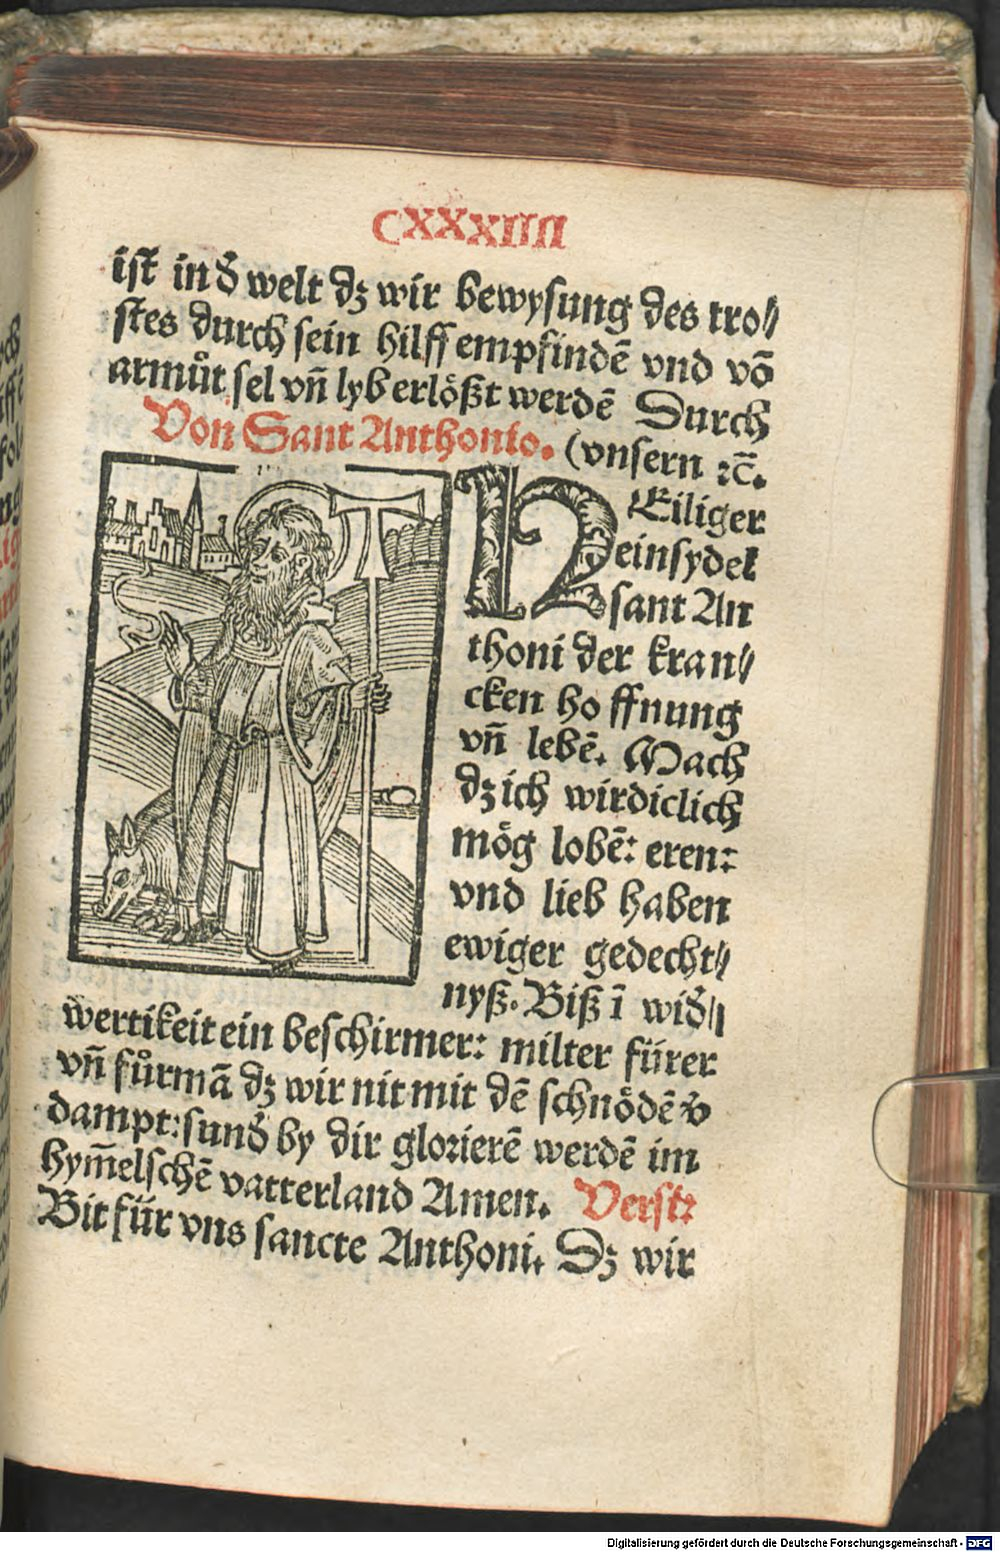 CXXXIIII
ist in đ welt dʒ wir bewysung des tro⸗
stes durch sein hilff empfindē vnd võ
armůt sel vñ lyb erlößt werdē Durch
Von Sant Anthonio. (vnsern ꝛc̄.
HEiliger
einsydel
sant An
thoni der kran⸗
cken hoffnung
vñ lebē. Mach
dʒ ich wirdiclich
mög lobē: eren:
vnd lieb haben
ewiger gedecht⸗
nyß. Biß ī widđ⸗
wertikeit ein beschirmer: milter fürer
vñ fůrmā dʒ wir nit mit dē schnödē v̄
dampt: sunđ by dir glorierē werdē im
hym̄elschē vatterland Amen. Verst:
Bit für vns sancte Anthoni. Dʒ wir
Digitalisierung gefördert durch die Deutsche Forschungsgemeinschaft - DFG